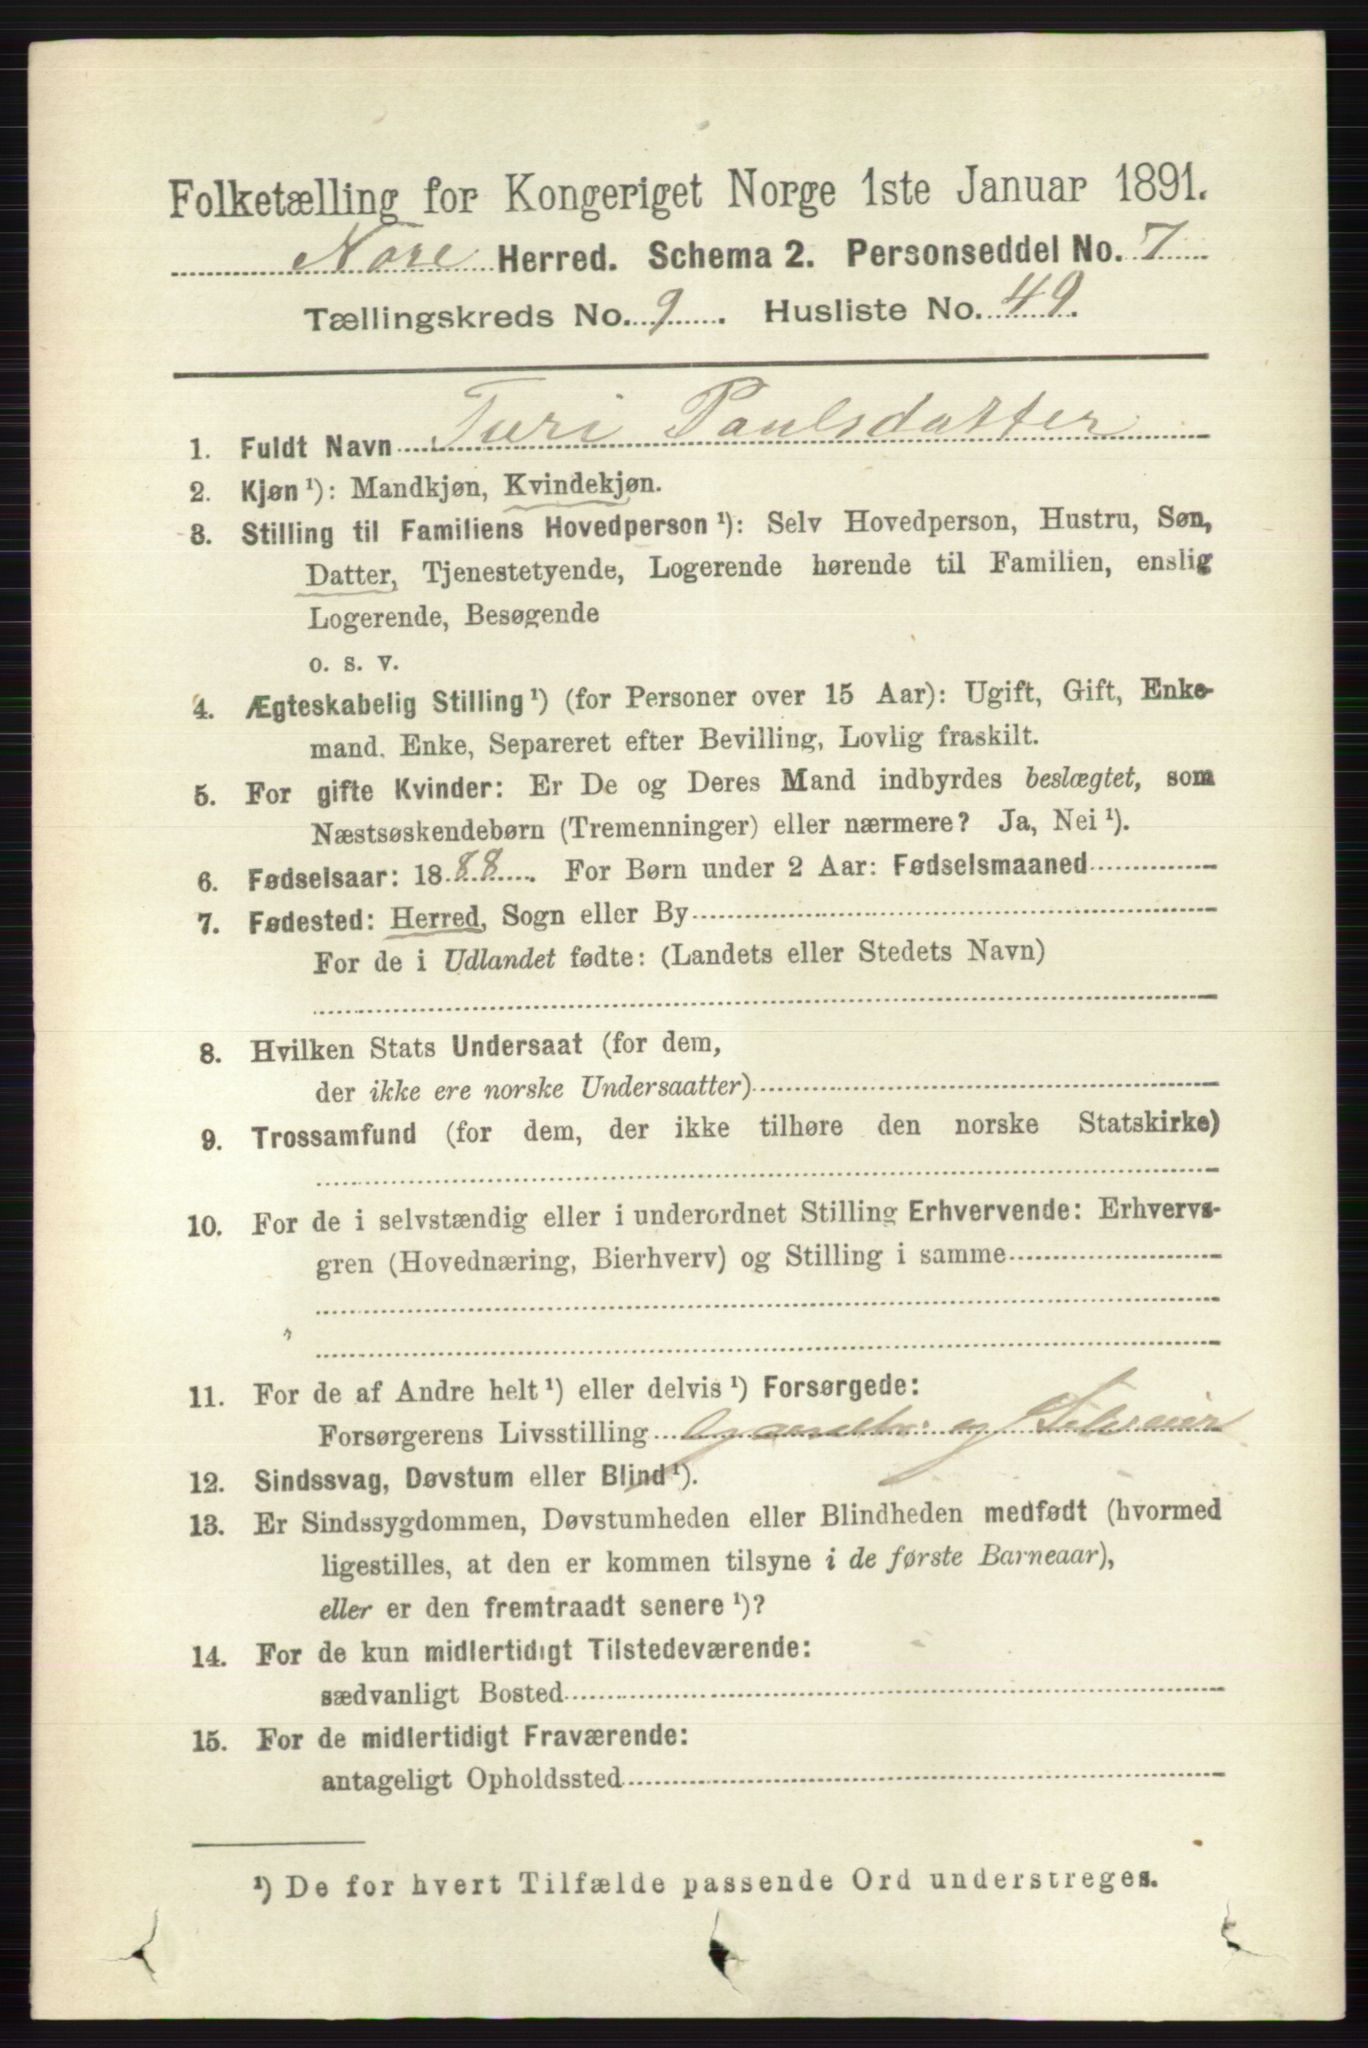 Folketælling for Kongeriget Norge 1ste Januar 1891.
Nore Herred. Schema 2. Personseddel No. 7
Tællingskreds No. 9. Husliste No. 49.
1. Fuldt Navn Turi Paulsdatter
2. Kjøn¹): Mandkjøn, Kvindekjøn.
3. Stilling til Familiens Hovedperson¹): Selv Hovedperson, Hustru, Søn,
Datter, Tjenestetyende, Logerende hørende til Familien, enslig
Logerende, Besøgende
o. s. v.
4. Ægteskabelig Stilling¹) (for Personer over 15 Aar): Ugift, Gift, Enke-
mand, Enke, Separeret efter Bevilling, Lovlig fraskilt.
5. For gifte Kvinder: Er De og Deres Mand indbyrdes beslægtet, som
Næstsøskendebørn (Tremenninger) eller nærmere? Ja, Nei¹).
6. Fødselsaar: 1888. For Børn under 2 Aar: Fødselsmaaned
7. Fødested: Herred, Sogn eller By
For de i Udlandet fødte: (Landets eller Stedets Navn)
8. Hvilken Stats Undersaat (for dem,
der ikke ere norske Undersaatter)
9. Trossamfund (for dem, der ikke tilhøre den norske Statskirke)
10. For de i selvstændig eller i underordnet Stilling Erhvervende: Erhvervs-
gren (Hovednæring, Bierhverv) og Stilling i samme
11. For de af Andre helt¹) eller delvis¹) Forsørgede:
Forsørgerens Livsstilling Gaardbr. og Selveier
12. Sindssvag, Døvstum eller Blind¹).
13. Er Sindssygdommen, Døvstumheden eller Blindheden medfødt (hvormed
ligestilles, at den er kommen tilsyne i de første Barneaar),
eller er den fremtraadt senere¹)?
14. For de kun midlertidigt Tilstedeværende:
sædvanligt Bosted
15. For de midlertidigt Fraværende:
antageligt Opholdssted
¹) De for hvert Tilfælde passende Ord understreges.